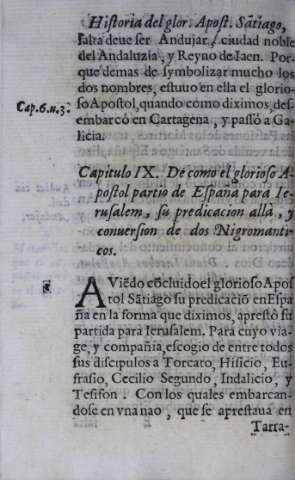 Historia del glor. Apost. Sātiago,
falta deue ser Andujar, ciudad noble
del Andaluzia, y Reyno de Iaen. Por-
que demas de symbolizar mucho los
dos nombres, estuuo en ella el glorio-
so Apostol, quando como diximos, des-
Cap.6.n.3.
embarcó en Cartagena, y passó a Ga-
licia.
Capitulo IX. De como el glorioso A-
postol partio de España para Ie-
rusalem, su predicacion allà, y
conuersion de dos Nigromanti-
cos.
AViēdo cōcluido el glorioso Apos
tol Sātiago su predicaciō en Espa
ña en la forma que diximos, aprestò su
partida para Ierusalem. Para cuyo via-
ge, y compañia, escogio de entre todos
sus discipulos a Torcato, Hisicio, Eu-
frasio, Cecilio Segundo, Indalicio, y
Tesifon. Con los quales embarcan-
dose en vna nao, que se aprestaua en
Tarra-